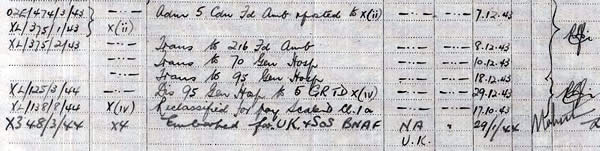 OZE/474/3/43 -.- Adm 5 Cdn Fd Amb reported to X(ii) -.- 7.12.43
XL/375/1/43 X(ii)
XL/375/2/43 -.- Trans to 216 Fd Amb -.- 8.12.43
-.- Trans to 70 Gen Hosp -.- 10.12.43
-.- Trans to 95 Gen Hosp -.- 18.12.43
XL/125/3/44 -.- Dis 95 Gen Hosp to 5 CRTD X(iv) -.- 29.12.43
XL/138/8/44 X(iv) Reclassified for pay Scale 17.10.43
X348/3/44 X4 Embarked for U.K & SOS BNAF NA " 29/1/44
U.K.